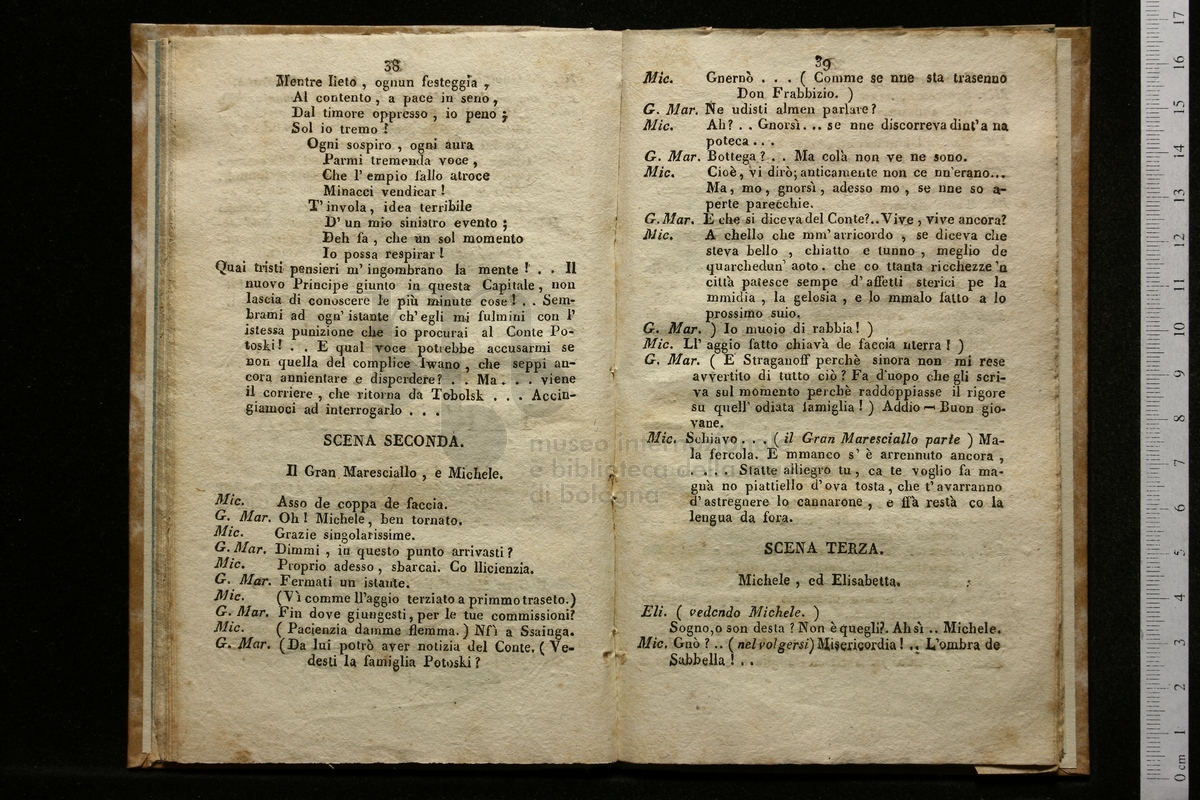 38
Mentre lieto , ognun festeggia ,
Al contento , a pace in seno ,
Dal timore oppresso , io peno ;
Sol io tremo !
Ogni sospiro , ogni aura
Parmi tremenda voce ,
Che l' empio fallo atroce
Minacci vendicar !
T' invola , idea terribile
D' un mio sinistro evento ;
Deh fa , che un sol momento
Io possa respirar !
Quai tristi pensieri m' ingombrano la mente ! . . Il
nuovo Principe giunto in questa Capitale , non
lascia di conoscere le più minute cose ! . . Sem-
brami ad ogn' istante ch' egli mi fulmini con l'
istessa punizione che io procurai al Conte Po-
toski ! . . E qual voce potrebbe accusarmi se
non quella del complice Iwano , che seppi an-
cora annientare e disperdere ? . . Ma . . . viene
il corriere , che ritorna da Tobolsk . . . Accin-
giamoci ad interrogarlo . . .
SCENA SECONDA.
Il Gran Maresciallo , e Michele.
Mic. Asso de coppa de faccia.
G. Mar. Oh ! Michele , ben tornato.
Mic. Grazie singolarissime.
G. Mar. Dimmi , in questo punto arrivasti ?
Mic. Proprio adesso , sbarcai. Co llicienzia.
G. Mar. Fermati un istante.
Mic. (Vì comme ll'aggio terziato a primmo traseto.)
G. Mar. Fin dove giungesti , per le tue commissioni?
Mic. ( Pacienzia damme flemma. ) Nfì a Ssainga.
G. Mar. (Da lui potrò aver notizia del Conte. ( Ve-
desti la famiglia Potoski ?
39
Mic. Gnernò . . . ( Comme se nne sta trasenno
Don Frabbizio. )
G. Mar. Ne udisti almen parlare ?
Mic. Ah? . . Gnorsì... se nne discorreva dint'a na
poteca . . .
G. Mar. Bottega ? . . Ma colà non ve ne sono.
Mic. Cioè, vi dirò; anticamente non ce nn'erano...
Ma, mo, gnorsì , adesso mo , se nne so a-
perte parecchie.
G. Mar. E che si diceva del Conte?..Vive , vive ancora?
Mic. A chello che mm' arricordo , se diceva che
steva bello , chiatto e tunno , meglio de
quarchedun' aoto. che co ttanta ricchezze 'n
città patesce sempe d' affetti sterici pe la
mmidia , la gelosia , e lo mmalo fatto a lo
prossimo suio.
G. Mar. ) Io muoio di rabbia ! )
Mic. Ll' aggio fatto chiavà de faccia nterra ! )
G. Mar. ( E Straganoff perchè sinora non mi rese
avvertito di tutto ciò ? Fa d'uopo che gli scri-
va sul momento perchè raddoppiasse il rigore
su quell' odiata famiglia ! ) Addio — Buon gio-
vane.
Mic. Schiavo . . . ( il Gran Maresciallo parte ) Ma-
la fercola. E mmanco s' è arrennuto ancora ,
. . . . Statte alliegro tu , ca te voglio fa ma-
gnà no piattiello d'ova tosta , che t'avarranno
d'astregnere lo cannarone , e ffà restà co la
lengua da fora.
SCENA TERZA.
Michele , ed Elisabetta.
Eli. ( vedendo Michele. )
Sogno, o son desta ? Non è quegli?. Ah sì .. Michele.
Mic. Gnò ? .. ( nel volgersi) Misericordia ! .. L'ombra de
Sabbella ! . .
e biblioteca della
di bologna